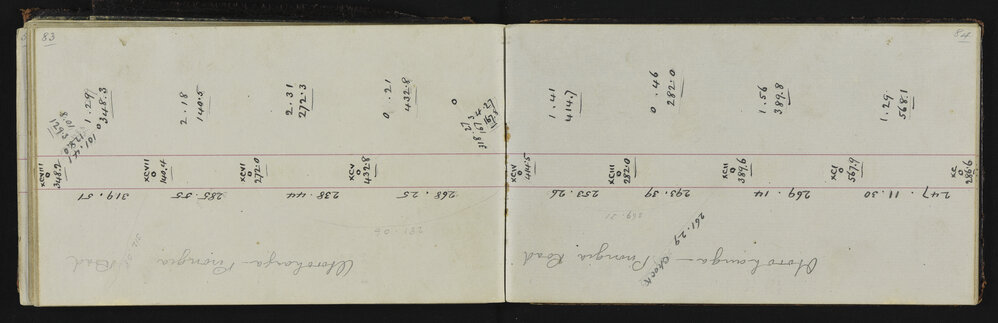 83
1.29
348.3
2.18
140.5
2.31
272.3
0.21
432.8
0
XCVIII
0
348.2
XCVII
0
140.4
XCVI
0
272.0
XCV
0
432.8
319.51
285.55
238.44
268.25
231.06
Otorohanga — Pirongia Road
84
1.41
414.7
0.46
282.0
1.56
389.8
1.29
568.1
XCIV
0
414.5
XCIII
0
282.0
XCII
0
389.6
XCI
0
567.9
XC
0
286.6
253.26
293.39
269.14
247.11.30
261.29
Check
Otorohanga — Pirongia Road